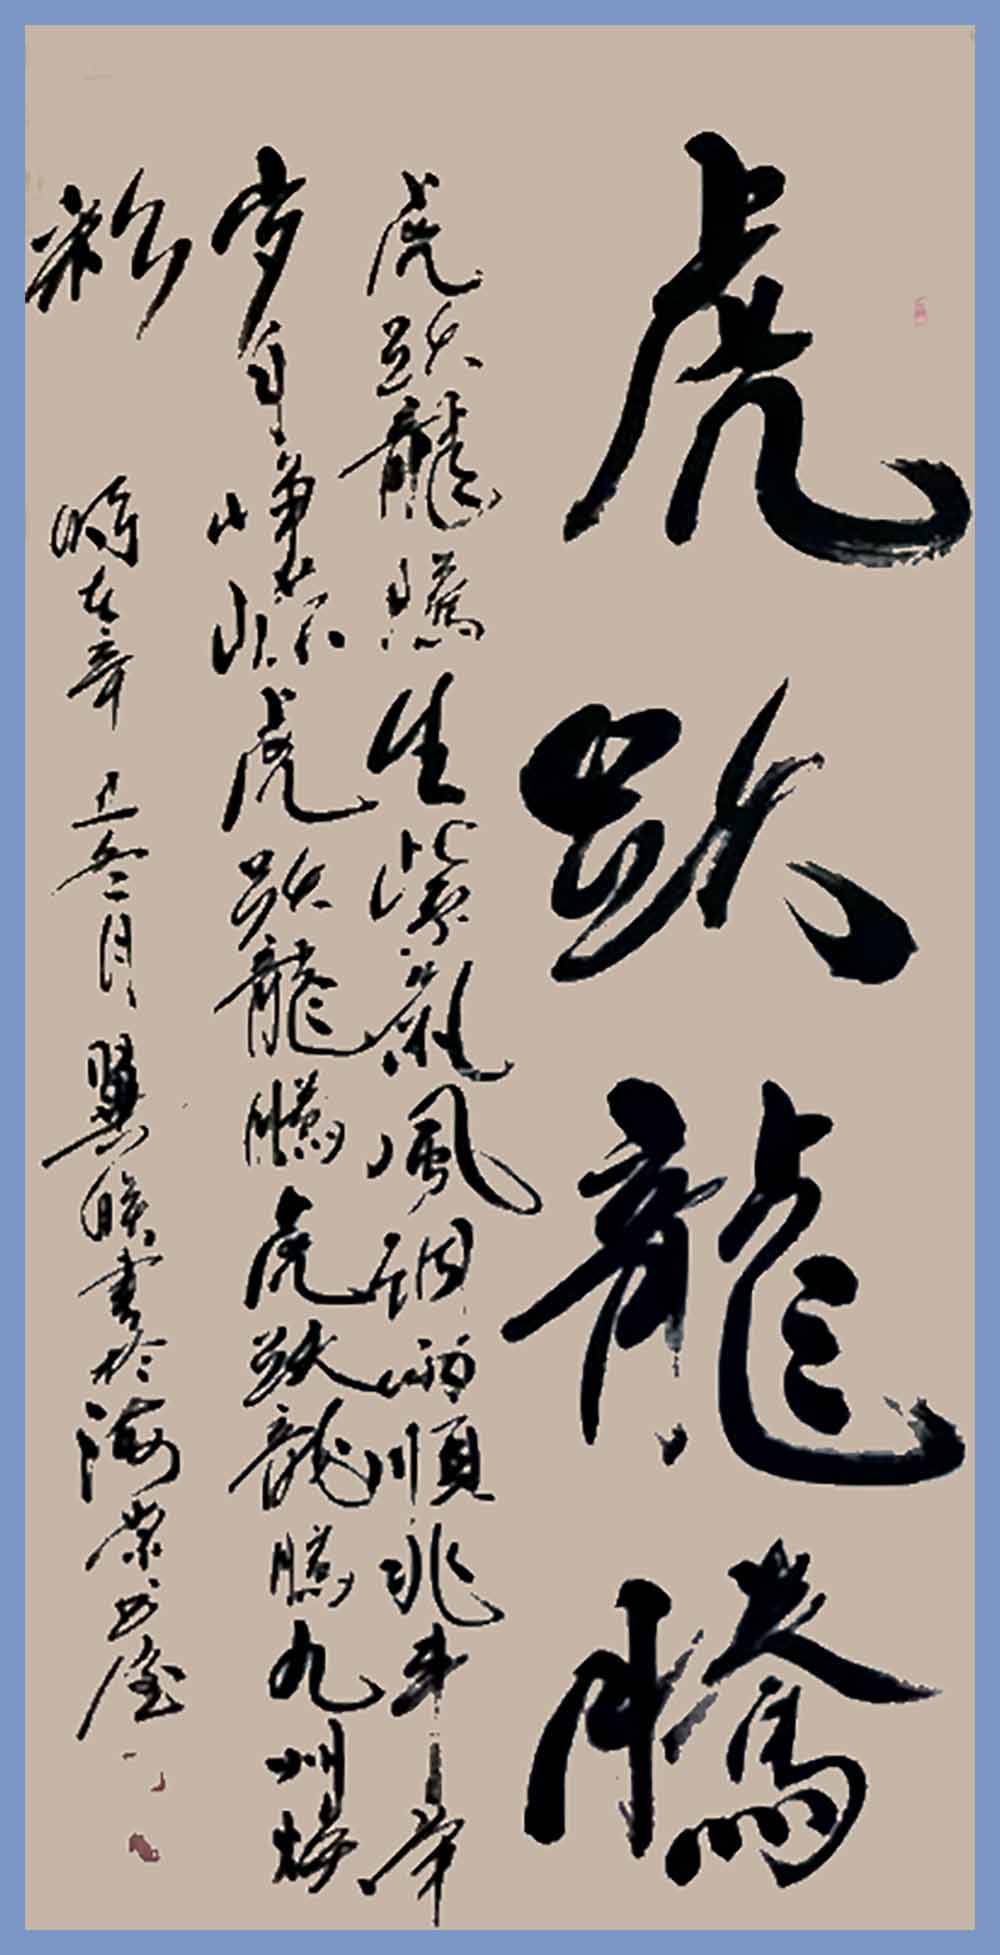 虎跃龍騰
虎跃龍騰生紫氣風調雨順兆丰年
岁峥嵘虎跃龍騰虎跃龍騰九州焕
彩 時在辛丑冬月翼書於海棠书屋